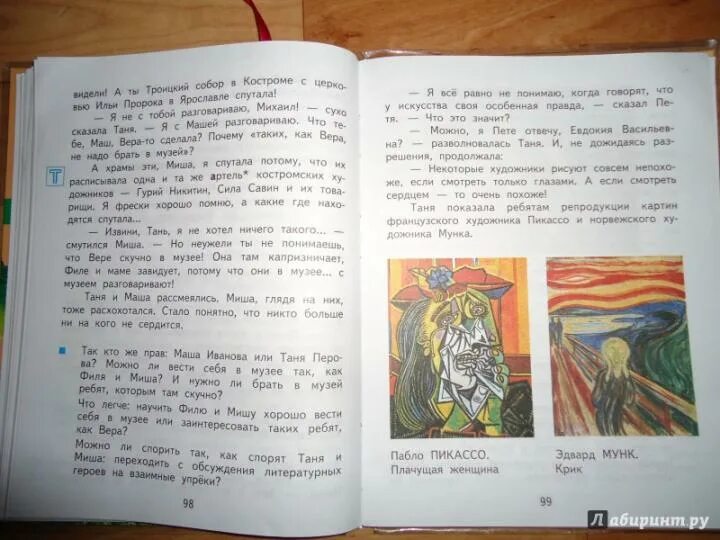 видели! А ты Троицкий собор в Костроме с церко-
вью Ильи Пророка в Ярославле спутала!
— Я не с тобой разговариваю, Михаил! — сухо
сказала Таня. — Я с Машей разговариваю. Что те-
бе, Маш, Вера-то сделала? Почему «таких, как Вера,
не надо брать в музей»?
Т
А храмы эти, Миша, я спутала потому, что их
расписывала одна и та же артель* костромских ху-
дожников — Гурий Никитин, Сила Савин и их това-
рищи. Я фрески хорошо помню, а какие где нахо-
дятся спутала...
— Извини, Тань, я не хотел ничего такого... —
смутился Миша. — Но неужели ты не понимаешь,
что Вере скучно в музее! Она там капризничает,
Филе и маме завидует, потому что они в музее... с
музеем разговаривают!
Таня и Маша рассмеялись. Миша, глядя на них,
тоже расхохотался. Стало понятно, что никто больше
ни на кого не сердится.
Так кто же прав: Маша Иванова или Таня Перо-
ва? Можно ли вести себя в музее так, как
Филя и Миша? И нужно ли брать в музей
ребят, которым там скучно?
Что легче: научить Филю и Мишу хорошо вести
себя в музее или заинтересовать таких ребят,
как Вера?
Можно ли спорить так, как спорят Таня и
Миша: переходить с обсуждения литературных
героев на взаимные упрёки?
98
— Я всё равно не понимаю, когда говорят, что
у искусства своя особенная правда, — сказал Пе-
тя. — Что это значит?
— Можно, я Пете отвечу, Евдокия Васильев-
на? — разволновалась Таня. И, не дожидаясь раз-
решения, продолжала:
— Некоторые художники рисуют совсем непохо-
же, если смотреть только глазами. А если смотреть
сердцем — то очень похоже!
Таня показала ребятам репродукции картин
французского художника Пикассо и норвежского ху-
дожника Мунка.
Пабло ПИКАССО.
Плачущая женщина
Эдвард МУНК.
Крик
99
Лабиринт.ру